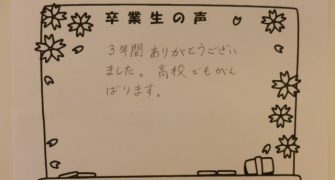 卒業生の声
3年間ありがとうござい
ました。高校でもがん
ばります。